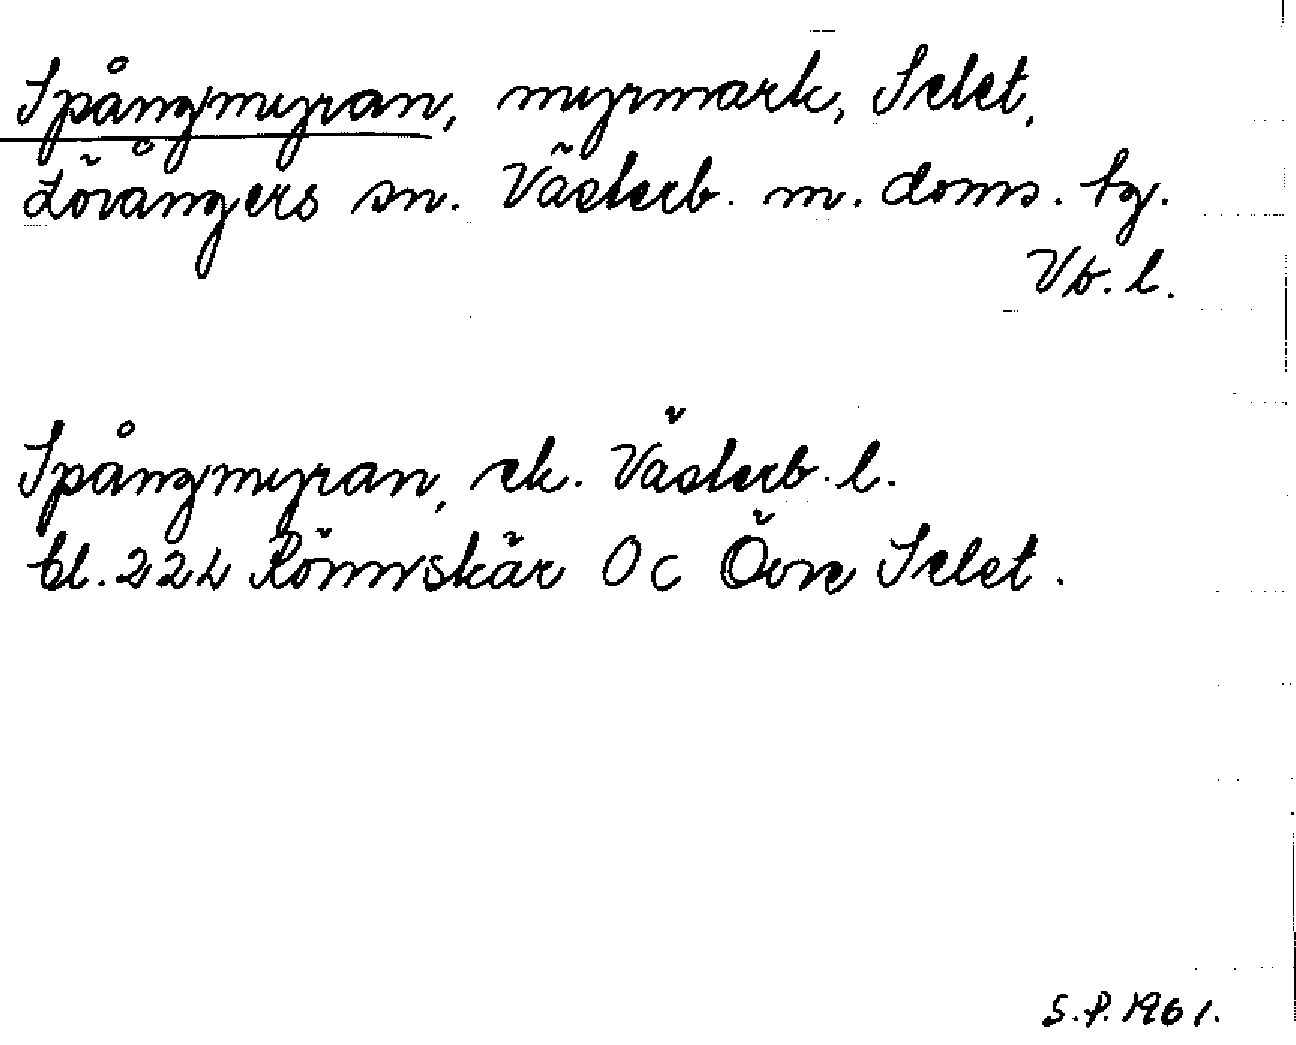 Spångmyran, myrmark, Selet,
Lövångers sn. Västerb. m. doms. tg.
Vb. l.
Spångmyran, ek. Västerb. l.
bl. 222 Rönnskär Oc Övre Selet.
S.P. 1961.